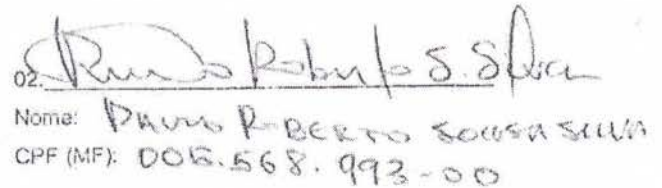 02. Roberto S. Silva
Nome: PAULO ROBERTO SOUSA SILVA
CPF (MF): 005.568.993-00